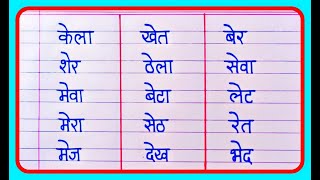 केला खेत बेर
शेर ठेला सेवा
मेवा बेटा लेट
मेरा सेठ रेत
मेज देख भेद